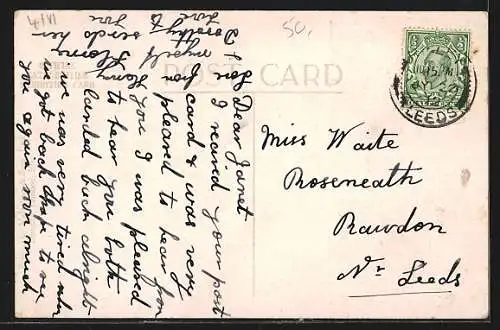 4/VI
50.
POST CARD
Dear Janet
I received your post
card & was very
pleased to hear from
you I was pleased
to hear you both
landed back alright
we was very tired when
we got back hope to see
you again soon much
love from
myself
Dorothy
send her
love
LEEDS
Miss Waite
Roseneath
Rawdon
Nr Leeds